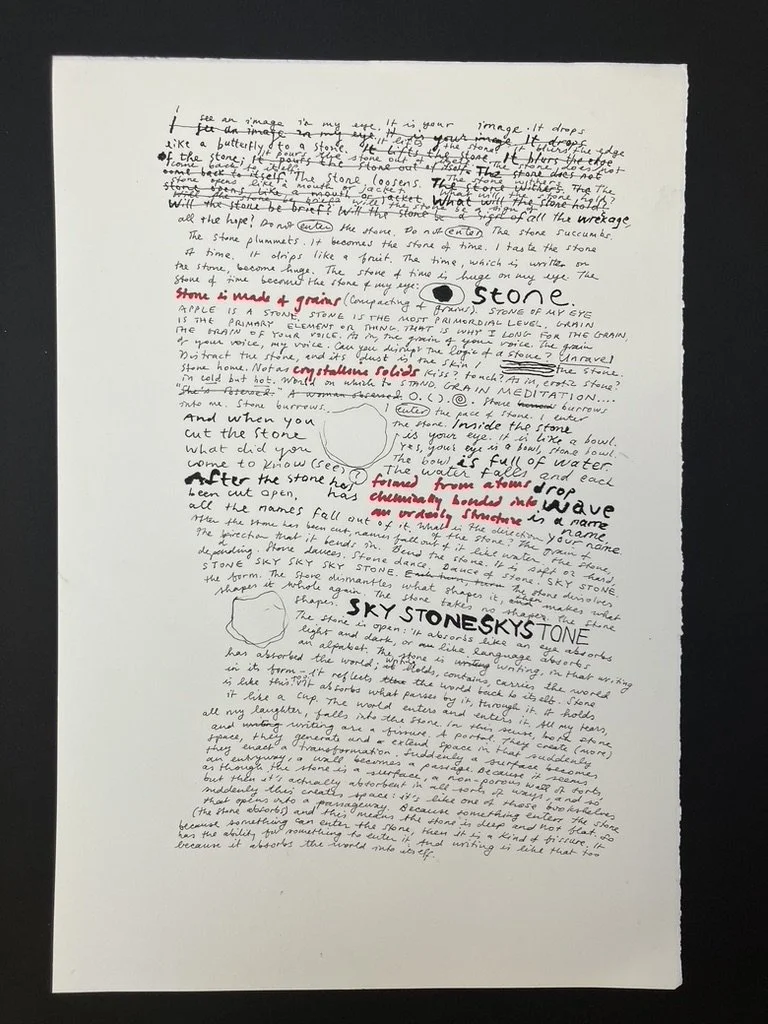 I see an image in my eye. It is your image. It drops
I see an image in my eye. It is your image. It drops
like a butterfly to a stone. It lifts the stone. It blurs the edge
of the stone; It pours the stone out of itself. The stone does not
come back to itself. The stone loosens. The stone withers. The The
stone opens like a mouth or jacket. What will the stone hold?
Will the stone be brief? Will the stone be a sigil of all the wreckage,
all the hope? Do not enter the stone. Do not enter. The stone succumbs.
The stone plummets. It becomes the stone of time. I taste the stone
of time. It drips like a fruit. The time, which is written on
the stone, become huge. The stone of time is huge on my eye. The
stone of time become the stone of my eye: stone.
Stone is made of grains (Compacting of grains). STONE OF MY EYE
APPLE IS A STONE. STONE IS THE MOST PRIMORDIAL LEVEL. GRAIN
IS THE PRIMARY ELEMENT OR THING. THAT IS WHY I LONG FOR THE GRAIN,
THE GRAIN OF YOUR VOICE. As in, the grain of your voice. The grain
of your voice, my voice. Can you disrupt the logic of a stone? Unravel
Distract the stone, and its dust is the skin! the stone.
Stone home. Not as crystalline solids Kiss? Touch? As in, erotic stone?
in cold but hot. World on which to STAND. GRAIN MEDITATION....
"She's reserved." A woman observed. O. ( ). Stone burrows
into me. Stone burrows. I enter the pace of stone. I enter
And when you the stone. Inside the stone
cut the stone is your eye. It is like a bowl.
what did you Yes, your eye is a bowl, stone bowl.
come to know (see)? The bowl is full of water.
The water falls and each
After the stone has formed from atoms drop
been cut open, has chemically bonded into wave
all the names fall out of it. an orderly structure is a name
What is the direction your name.
After the stone has been cut, names fall out of the stone? The grain of
the direction that it bends in. Bend the stone. It is soft or hard,
depending. Stone dances. Stone dance. Dance of stone. SKY STONE.
STONE SKY SKY SKY STONE. The stone dissolves
the form. The stone dismantles what shapes it, and makes what
shapes it whole again. The stone takes no shapes. The stone
shapes. SKY STONESKYSTONE
The stone is open: it absorbs like an eye absorbs
light and dark, or like language absorbs
an alphabet. The stone is writing, in that writing
has absorbed the world; it holds, contains, carries the world
in its form – it reflects the world back to itself. Stone
is like this too: it absorbs what passes by it, through it. It holds
it like a cup. The world enters and enters it. All my tears,
all my laughter, falls into the stone. In this sense, both stone
and writing are a fissure. A portal. They create (more)
space, they generate and extend space in that suddenly
they enact a transformation. Suddenly a surface becomes
an entryway, a wall becomes a passage. Because it seems
as though the stone is a surface, a non-porous wall of sorts,
but then it's actually absorbent in all sorts of ways, and so
suddenly this creates space: it's like one of those bookshelves
that opens into a passageway. Because something enters the stone
(the stone absorbs) and this means the stone is deep and not flat. So
because something can enter the stone, then it is a kind of fissure. It
has the ability for something to enter it. And writing is like that too
because it absorbs the world into itself.